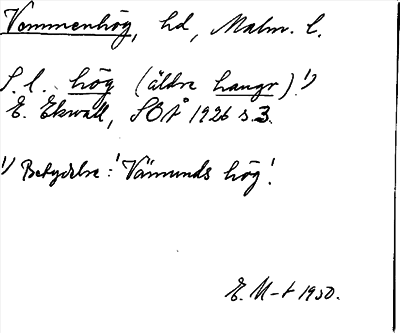 Vemmenhög, hd, Malm. l.
S. l. hög (äldre haugr).¹)
E. Ekwall, SOÅ 1926 s. 3.
¹) Betydelse: 'Vämunds hög'.
E. M-t 1950.